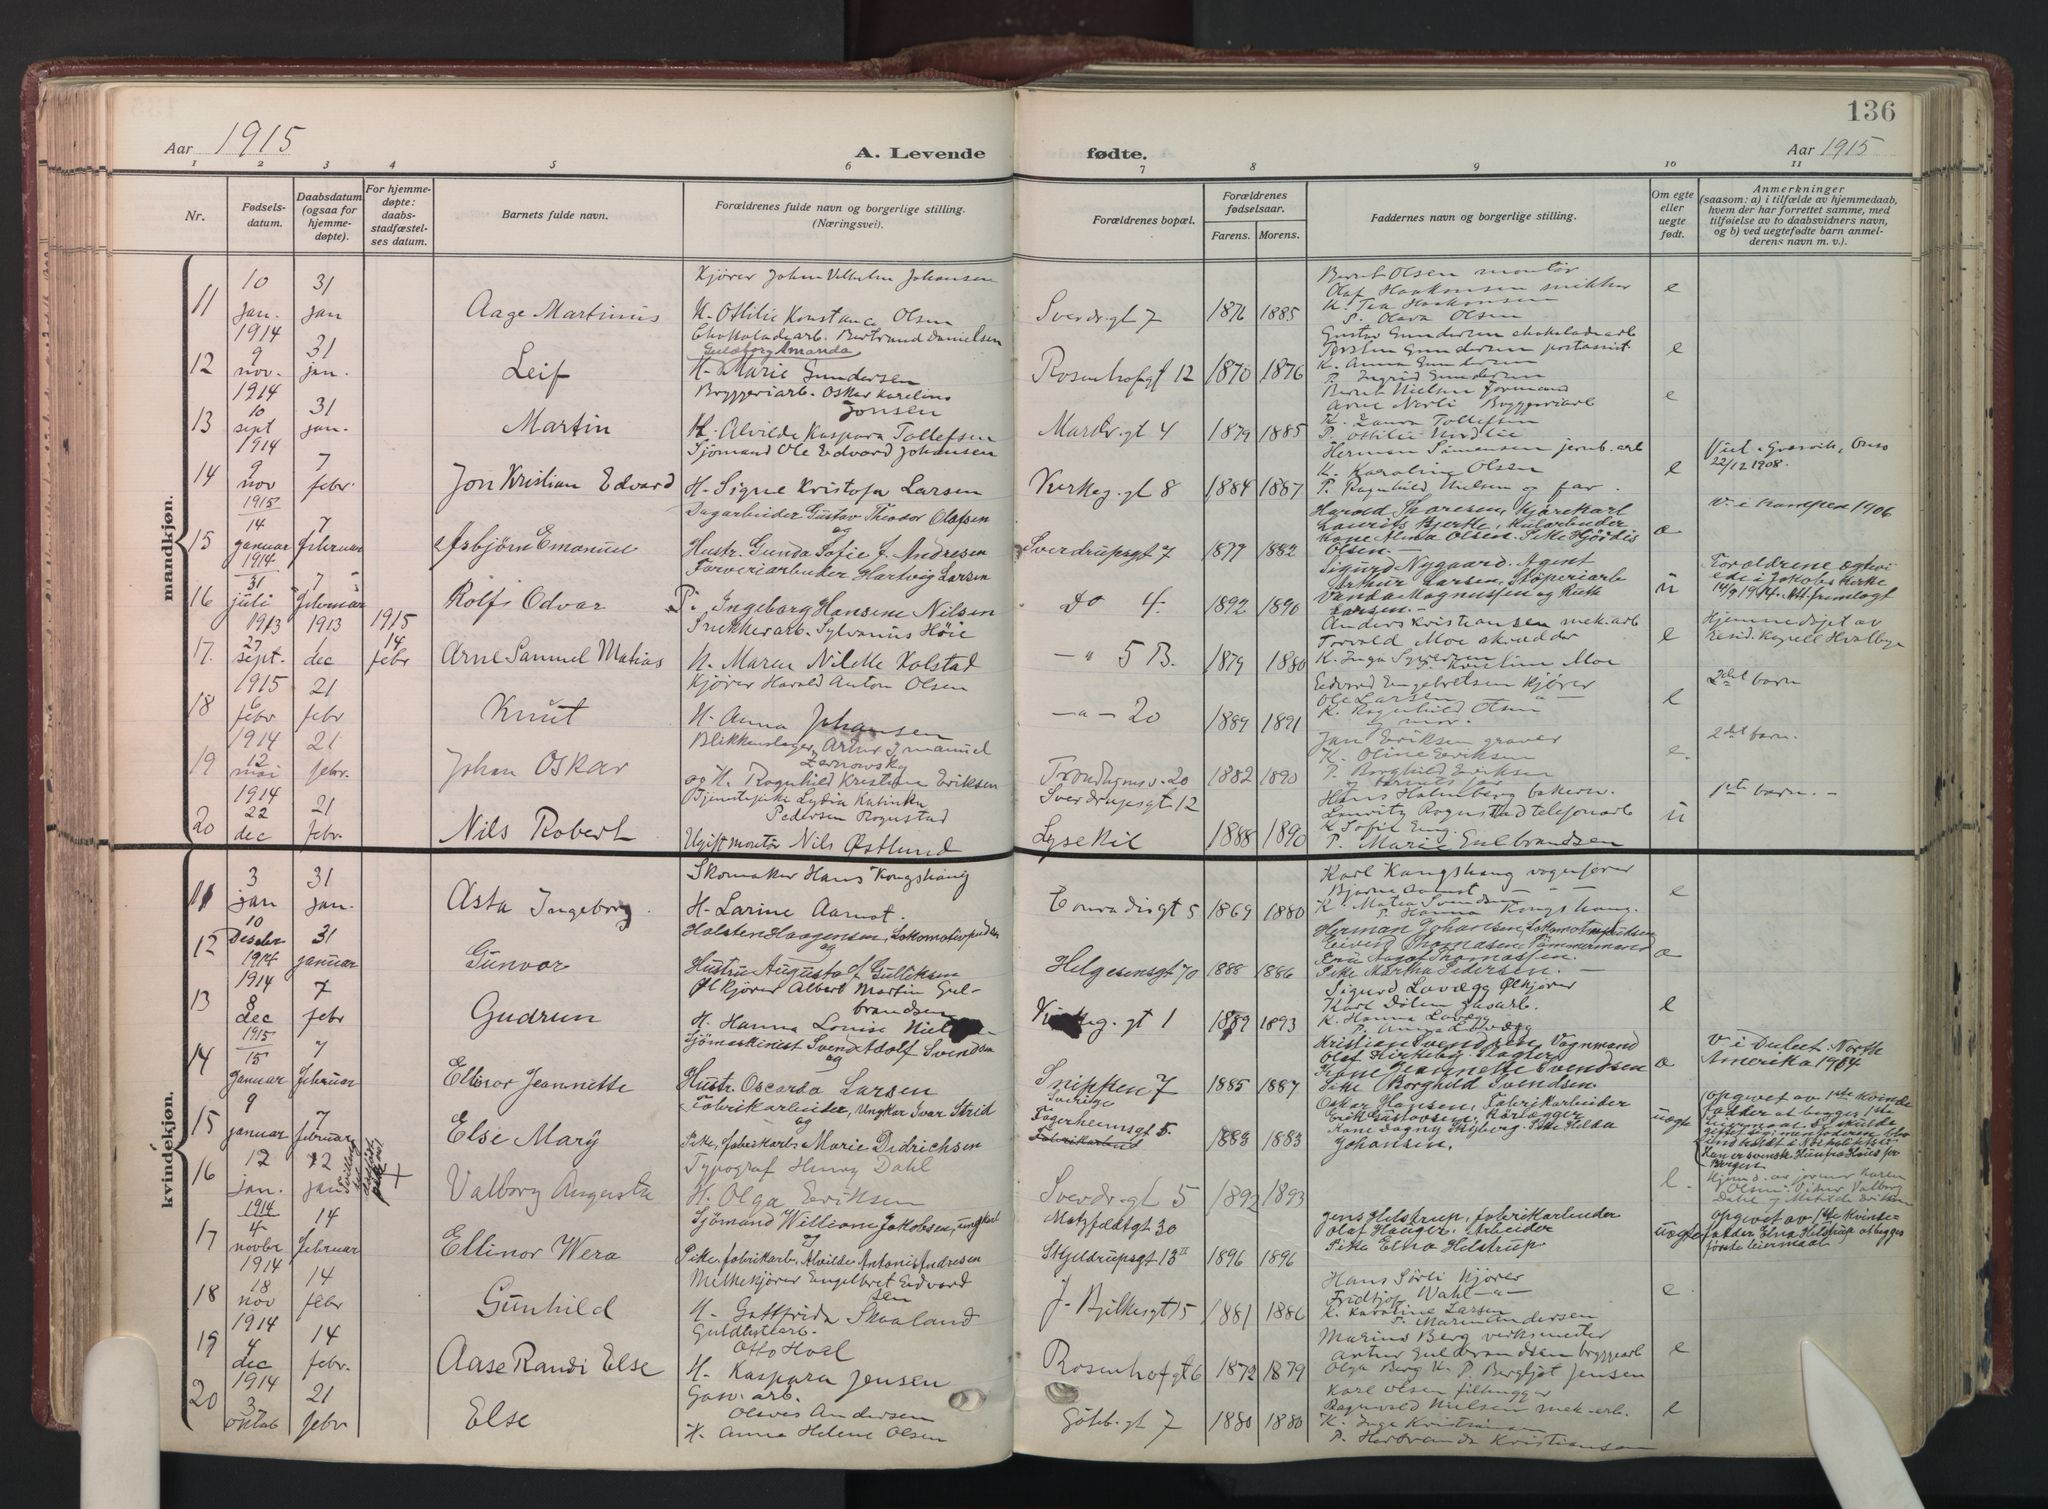 136
Aar 1915
A. Levende
fødte.
Aar 1915
1 2 3 4 5 6 7 8 9 10 11
Nr.
Fødsels-
datum.
Daabsdatum
(ogsaa for
hjemme-
døpte).
For hjemme-
døpte:
daabs-
stadfæstel-
ses datum.
Barnets fulde navn.
Forældrenes fulde navn og borgerlige stilling.
(Næringsvei).
Forældrenes bopæl.
Forældrenes
fødselsaar.
Farens. Morens.
Faddernes navn og borgerlige stilling.
Om egte
eller
uegte
født.
Anmerkninger
(saasom: a) i tilfælde av hjemmedaab,
hvem der har forrettet samme, med
tilføielse av to daabsvidners navn,
og b) ved uegtefødte barn anmel-
derens navn m. v.).
mandkjøn.
11
10 jan.
31 jan
Aage Martinus
Kjører Johan Vilhelm Johansen
H. Ottilie Konstance Olsen
Sverdr.gt 7
1876 1885
Bernt Olsen montør
Olaf Haakonsen snikker
K. Tea Haakonsen
P. Olava Olsen
e
12
1914 9 nov.
31 jan.
Leif
Chokoladearb. Bertrand Danielsen
Guldborg Amanda
H. Marie Gundersen
Rosenhofgt 12
1870 1876
Gustav Gundersen chokoladearb
Torsten Gundersen postassist.
K. Anna Gundersen
P. Ingrid Gundersen
e
13
1914 10 sept
31 jan.
Martin
Bryggeriarb. Oskar Karelius
Jonsen
H. Alvilde Kaspara Tollefsen
Markv.gt 4
1879 1885
Bernt Nielsen Formand
Arne Nerli Bryggeriarb
K. Laura Tollefsen
P. Ottilie Nordlie
e
14
1914 9 nov
7 febr.
Jon Kristian Edvard
Sjømand Ole Edvard Johansen
H. Signe Kristofa Larsen
Kirkeg.gt 8
1884 1887
Herman Simensen jernb.arb
K. Karoline Olsen
P. Ragnhild Nielsen og far.
e
Viet i Græsvik, Onsø
22/12 1908.
15
1915 14 januar
7 februar
Asbjørn Emanuel
Dagarbeider Gustav Theodor Olafsen
og
Hustr. Gunda Sofie f. Andresen
Sverdrupsgt 7
1877 1882
Harald Thoresen, kjørekarl
Laurits Bjerkke, Kularbeider
Kone Alma Olsen. Pike Hjørdis
Olsen. —
æ
V. i Kampen 1906
16
1914 31 juli
7 februar
Rolf Odvar
Farveriarbeider Hartvig Larsen
P. Ingeborg Hansine Nilsen
Do 4.
1892 1890
Sigurd Nygaard. Agent
Arthur Larsen, Støperiarb
Vanda Magnussen og Ruth
Larsen. —
u
Forældrene egtevi-
ede i Jakobs Kirke
17.
1913 27 sept.
1913 dec
1915 14 febr
Arne Samuel Matias
Snekkerarb. Sylvanius Høie
H. Maren Nilekke Kolstad
— " 5 B.
1879 1880
Anders Kristiansen mek.arb
Torvald Moe skrædder
e
Hjemmedøpt av
18
1915 6 febr
21 febr
Knut
Kjører Harald Anton Olsen
H. Anna Johansen
— " — 20
1889 1891
Edvard Engebretsen Kjører
Ole Larsen — " —
K. Ragnhild Olsen
og mor.
e
2det barn
19
1914 12 mai
21 febr.
Johan Oskar
Blikkenslager Artur Imanuel
Zarnowsky
og H. Ragnhild Kristine Eriksen
Trondhjemsv. 20
1882 1890
Jan Eriksen graver
K. Oline Eriksen
P. Borghild Eriksen
og barnets far
e.
2det barn.
20
1914 22 dec
21 febr.
Nils Robert
Tjenestepike Lydia Katinka
Pedersen Rognstad
Ugift montør Nils Østlund
Sverdrupsgt. 12
Lysekil
1888 1890
Hans Holmberg bakersv.
Lauritz Rognstad telefonarb
K. Sofie Eng
P. Marie Gulbrandsen
u
1ste barn. —
kvindekjøn.
11
3 jan
31 jan.
Asta Ingeborg.
Skomaker Hans Kongshaug
H. Larine Aamot.
Conradisgt 5
1869 1880
Karl Kongshaug vognfører
Bjarne Aamot — " —
K. Matea Svendsen
P. Hanna Kongshaug.
e
12
10 Desebr 1914
31 januar
Gunvor
Halsten Haagensen, Lokomotivpudser
og
Hustru Augusta f. Gulliksen
Helgesensgt 70
1888 1886
Herman Johansen,
Eivind Thomasen, Tømmermand
Fru Aagot Thomassen.
Pike Martha Pedersen. —
æ
13
1914 8 dec
7 febr
Gudrun
Ølkjører Albert Martin Gul-
brandsen
H. Hanna Louise
gt 1
1889 1893
Sigurd Lovægg Ølkjører
K. Hanna Lovægg
P. Anna Lovægg
e
14
1915 15 januar
7 februar
Ellinor Jeannette
Sjømaskinist Svend Adolf Svendsen
og
Hustr. Oscarda Larsen
Snippen 7
1885 1887
Kristian Svendsen Vognmand
Olaf Kirkeby. Slagter
Kone Jeannette Svendsen
Pike Borghild Svendsen.
æ
V. i Duluth. North
Amerika 1904
15
9 januar
7 februar
Else Mary
Fabrikarbeider, Ungkar Ivar Strid
og
Pike, fabrikarb. Marie Didrichsen
Sverige
Fagerheimsgt 5.
Fabrikarbeid
1883 1883
Oskar Hansen, Fabrikarbeider
Erik Gustavsen, Rørlægger
Kone Dagny Nyberg. Pike Hilda
Johansen.
uægte
Opgivet av 1ste kvinde-
fadder
16
12 jan.
12 jan
Valborg Augusta
Typograf Henry Dahl
H. Olga Eriksen
Sverdr.gt 5
1892 1893
e.
17
1914 4 novbr
14 februar
Ellinor Wera
Sjømand William Jakobsen, ungkarl
og
Pike, fabrikarb. Alvilde Antonie Andresen
Motzfeldtsgt 30
Skjeldrupsgt 13 II
1896 1896
Jens Helstrup, fabrikarbeider
Olaf Hauger. Arbeider
Pike Elna Helstrup
uægte
Opgivet av 1ste kvinde-
fadder Elna Helstrup at begges
første leiermaal
18
1914 18 nov
14 febr
Gunhild
Melkekjører Engelbret Edvard
sen
H. Gottfrida Skaaland
J. Bjelkesgt 15
1881 1886
Hans Sørli Kjører
Fridtjof Wahl — " —
K. Karoline Larsen
P. Maren Andersen
e.
19
1914 4 dec
14 febr.
Aase Randi Else
Guldlistearb.
Otto Hoel
H. Kaspara Jensen
Rosenhofgt 6
1872 1879
Marius Berg verksmester
Artur Gulbrandsen bryggearb
Olga Berg K. P. Bergljot Jensen
e
20
1914 3 oktob
21 febr
Else
Gasv.arb.
Olaves Andersen
H. Anna Helene Olsen
Göteb.gt 7
1880 1880
Karl Olsen filhugger
Ragnvald Nielsen mek.arb.
K. Inga Kristiansen
P. Herbranda Kristiansen
e